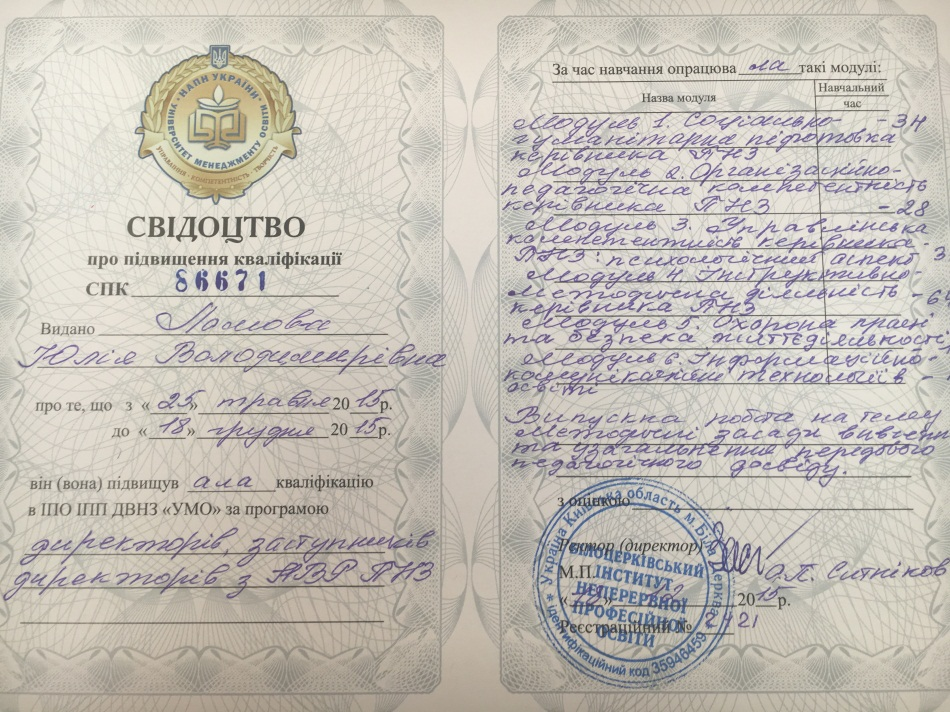 НАПН УКРАЇНИ
УНІВЕРСИТЕТ МЕНЕДЖМЕНТУ ОСВІТИ
УПРАВЛІННЯ · КОМПЕТЕНТНІСТЬ · ТВОРЧІСТЬ
СВІДОЦТВО
про підвищення кваліфікації
СПК 86671
Видано
Юлія Володимирівна
про те, що з «25» травня 2015р.
до «18» грудня 2015р.
він (вона) підвищув ала кваліфікацію
в ІПО ІПП ДВНЗ «УМО» за програмою
директорів, заступників
директорів з НВР ПНЗ
За час навчання опрацюва ла такі модулі:
Назва модуля
Навчальний
час
Модуль 1. Соціально- - 34
гуманітарна підготовка
керівника ПНЗ
Модуль 2. Організаційно-
педагогічна компетентність
керівника ПНЗ - 28
Модуль 3. Управлінська
компетентність керівника
ПНЗ: психологічний аспект
Модуль 4. Інструктивно-
методична діяльність
керівника ПНЗ
Модуль 5. Охорона праці
та безпека життєдіяльності
Модуль 6. Інформаційно-
комунікаційні технології в
освіті
Випускна робота на тему
Методичні засади
та узагальнення передового
педагогічного досвіду.
з оцінкою
Ректор (директор) О.П. Ситніков
М.П.
2015р.
Реєстраційний № 421
Україна Київська область м.Біла Церква
БІЛОЦЕРКІВСЬКИЙ
ІНСТИТУТ
НЕПЕРЕРВНОЇ
ПРОФЕСІЙНОЇ
ОСВІТИ
ідентифікаційний код 35946459